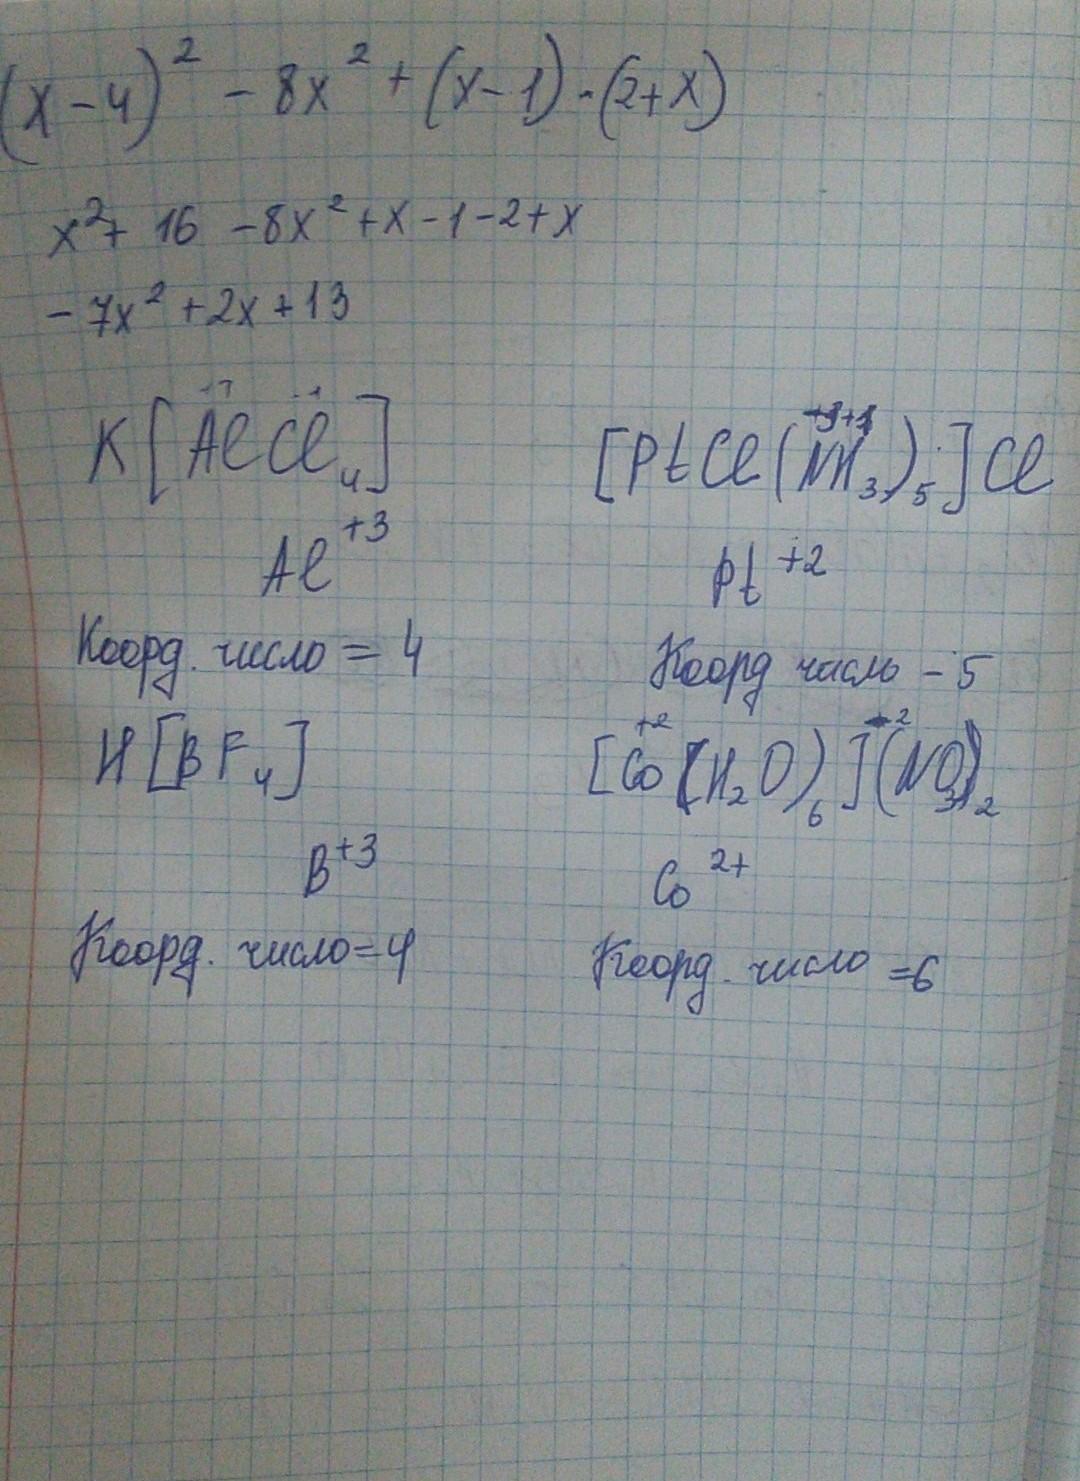 (x-4)² - 8x² + (x-1) - (2+x)
x² + 16 - 8x² + x - 1 - 2 + x
- 7x² + 2x + 13
K[AlCl₄]
Al⁺³
Коорд. число = 4
H[BF₄]
B⁺³
Коорд. число = 4
[PtCl(NH₃)₅]Cl
Pt⁺²
Коорд число - 5
+2 -2
[Co(H₂O)₆](NO₃)₂
Co²⁺
Коорд. число = 6